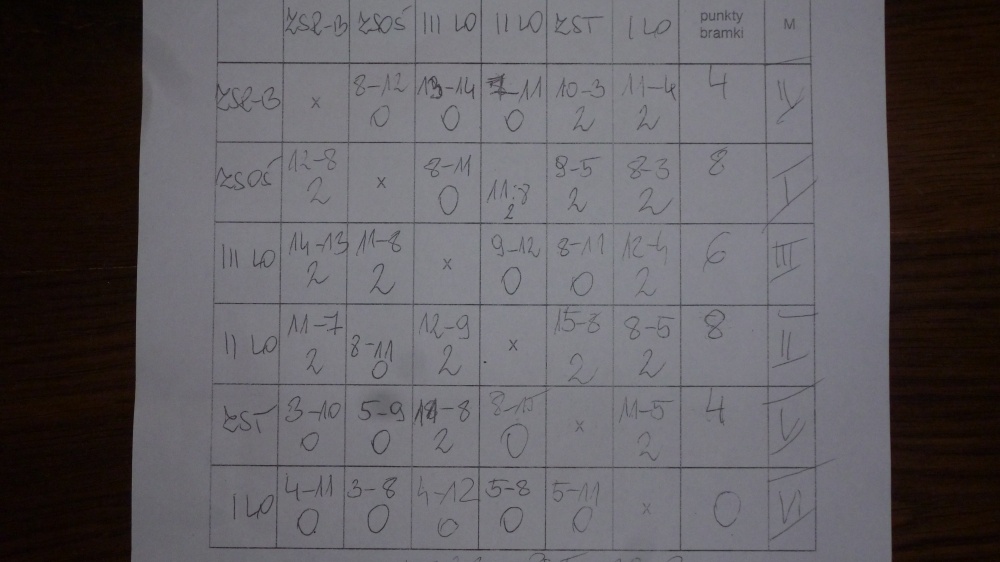 ZSR-B ZSOŚ III LO II LO ZST I LO punkty bramki M
ZSR-B x 8-12 13-14 7-11 10-3 11-4 4 IV
0 0 0 2 2
ZSOŚ 12-8 x 8-11 11:8 9-5 8-3 8 I
2 0 2 2 2
III LO 14-13 11-8 x 9-12 8-11 12-4 6 III
2 2 0 0 2
II LO 11-7 8-11 12-9 x 15-8 8-5 8 II
2 0 2 2 2
ZST 3-10 5-9 11-8 8-15 x 11-5 4 V
0 0 2 0 2
I LO 4-11 3-8 4-12 5-8 5-11 x 0 VI
0 0 0 0 0